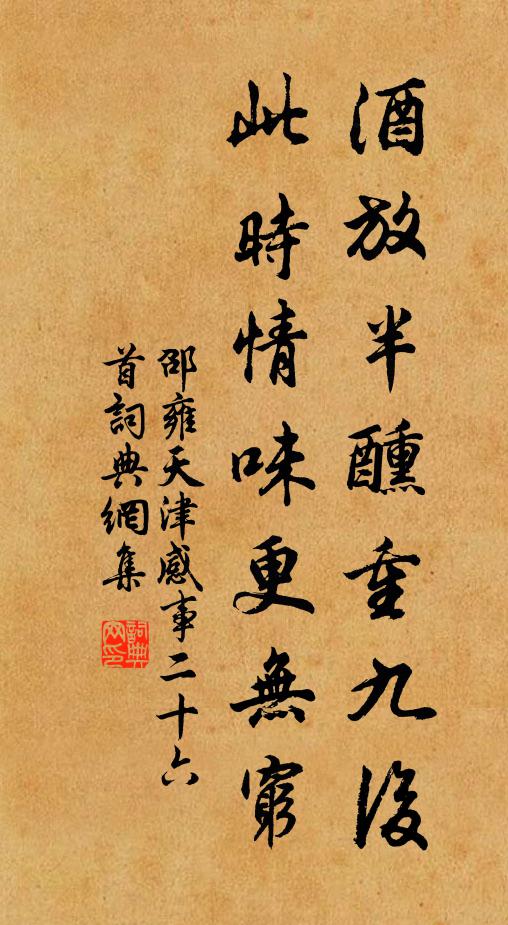 酒放半醺重九後
此時情味更無窮
邵雍天津感事二十六
首詞典網集
詞典
网印